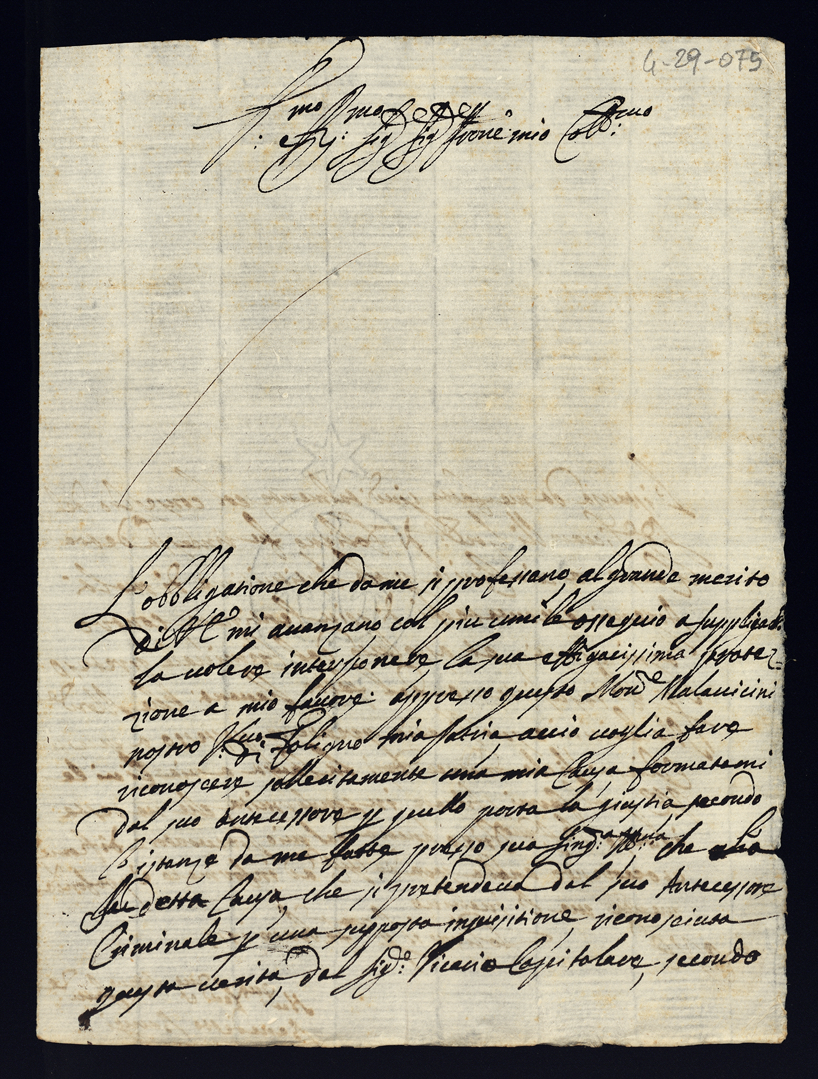 4-29-075
mo Rmo Sigr Sigr Prone mio Colmo
L'obbligatione che da me si professano al grande merito
di mi avanzano col piu umile ossequio a supplicar
la volere interponere la sua efficacissima protez=
zione a mio favore appresso questo Monre Malavicini
nostro di Foligno mia Patria, accio voglia fare
riconoscere sollecitamente una mia Causa formatami
dal suo Antecessore p quello porta la giustia secondo
l'istanze da me fatte presso sua che
detta Causa che si pretendeva dal suo Antecessore
Criminale p una supposta inquisitione riconosciuta
questa verita, dal Sigre Vicario Capitolare, secondo